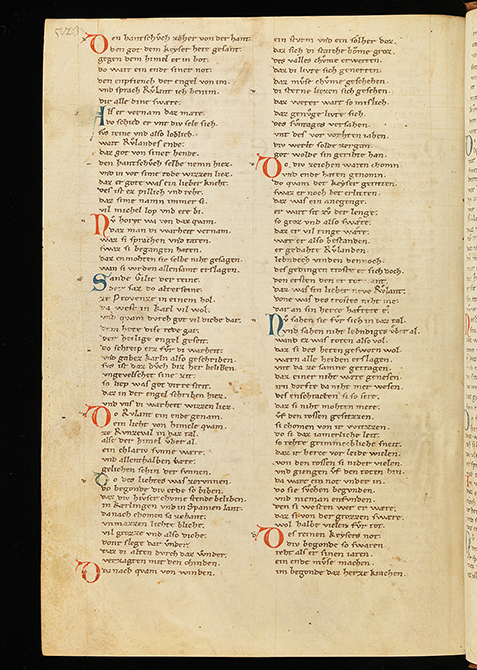 Den hantschvch zoher von der hant
den got dem keyser hete gesant.
gegen dem himel er in bot.
do wart ein ende siner not.
den enpfiench der engel von im.
vnd sprach Rv̊lant ich benim.
dir alle dine swære.
Als er vernam daz mære.
do schied er vnt div sele sich.
svs reine vnd also loblich.
wart Rv̊landes ende.
daz got von siner hende.
den hantschvch selbe nemn hiez.
vnd in vor sime tode wizzen liez.
daz er gote was ein lieber kneht.
des ist er pillich vnd reht.
daz sine namn immer si.
vil michel lop vnd ere bi.
Nv horet wa von daz quam.
daz man di warheit vernam.
waz si sprachen vnd taten.
swaz si begangen haten.
daz enmohten sie selbe niht gesagen.
wan si wrden allensamt erslagen.
Sande Gilie der reine.
der saz do alterseine.
ze Provenze in einem hol.
da west in karl vil wol.
vnd quam dvrch got vil dicke dar.
dem hete dise rede gar.
der heilige engel geseit.
do schreip erz fvr di warheit.
vnd gabez karln also geschriben.
svs ist daz bvch dir her beliben.
vngevelschet sine zit.
so liep was got dirre strit.
daz in der engel schriben hiez.
vnd vns di warheit wizzen liez.
Do Rvlant ein ende genam.
ein lieht von himele quam.
ze Runzeval in daz tal.
alse der himel vber al.
ein chlariv svnne wære.
vnd allenthalben bære.
gelichen schin der svnnen.
Do des liehtes was zervnnen.
do begonde div erde so biben.
daz div hivser chvme stende beliben.
in kærlingen vnd in Spanien lant.
da nach chomen sa zehant.
vnmazzen liehte bliche.
vil grozze vnd also diche.
dont slege dar vnder.
daz di alten dvrch daz wnder.
verzagten mit den chinden.
Da nach quam von winden.
ein stvrm vnd ein solher doz.
daz sich di starche bovme groz.
des valles chvme erwerten.
daz di livte sich generten.
daz mvse chvme geschehen.
di sterne liezen sich gesehen.
daz weter wart so mislich.
daz genvge livte sich.
des svntages versahen.
vnt des vor vorhten iahen.
div werlt solde zergan.
got wolde sin gerihte han.
Do div zeichen waren chomn.
vnd ende haten genomn.
do quam der keyser geriten.
swaz er noch het erliten.
daz was ein anegenge.
er wart sit zv der lenge.
so groz vnd also swære.
daz er vil ringe wære.
wær er also bestanden.
er gedaht Rv̊landen.
lebndech vinden dennoch.
des gedingen troste er sich doch.
den ersten den er tot vant.
daz was sin lieber neve Rv̊lant.
done was des trostes niht me.
dar an sin herce haftete e.
Nv sahen sie fvr sich in daz tal.
vnd sahen niht lebndiges vber al.
wand ez was toten also vol.
daz si des heten gesworn wol.
wærn alle heiden erslagen.
vnt da ze samne getragen.
daz einer niht wære genesen.
irn dorfte da niht mer wesen.
des erschracken si so sere.
daz si niht mohten mere.
vf den rossen gesitzzen.
si chomen von ir witzzen.
do si daz iamerliche leit.
so rehte grimmecliche sneit.
daz ir herce vor leide wielen.
von den rossen si nider vielen.
vnd giengen vf den toten hin.
da wart ein not vnder in.
do sie svchen begvnden.
vnd nieman enfvnden.
den si westen wer er wære.
daz si von der grozzen swære.
wol halbe vielen fvr tot.
Des reinen keysers not.
div begonde so swaren.
reht als er sinen iaren.
ein ende mvse machen.
im begonde daz herze krachen.